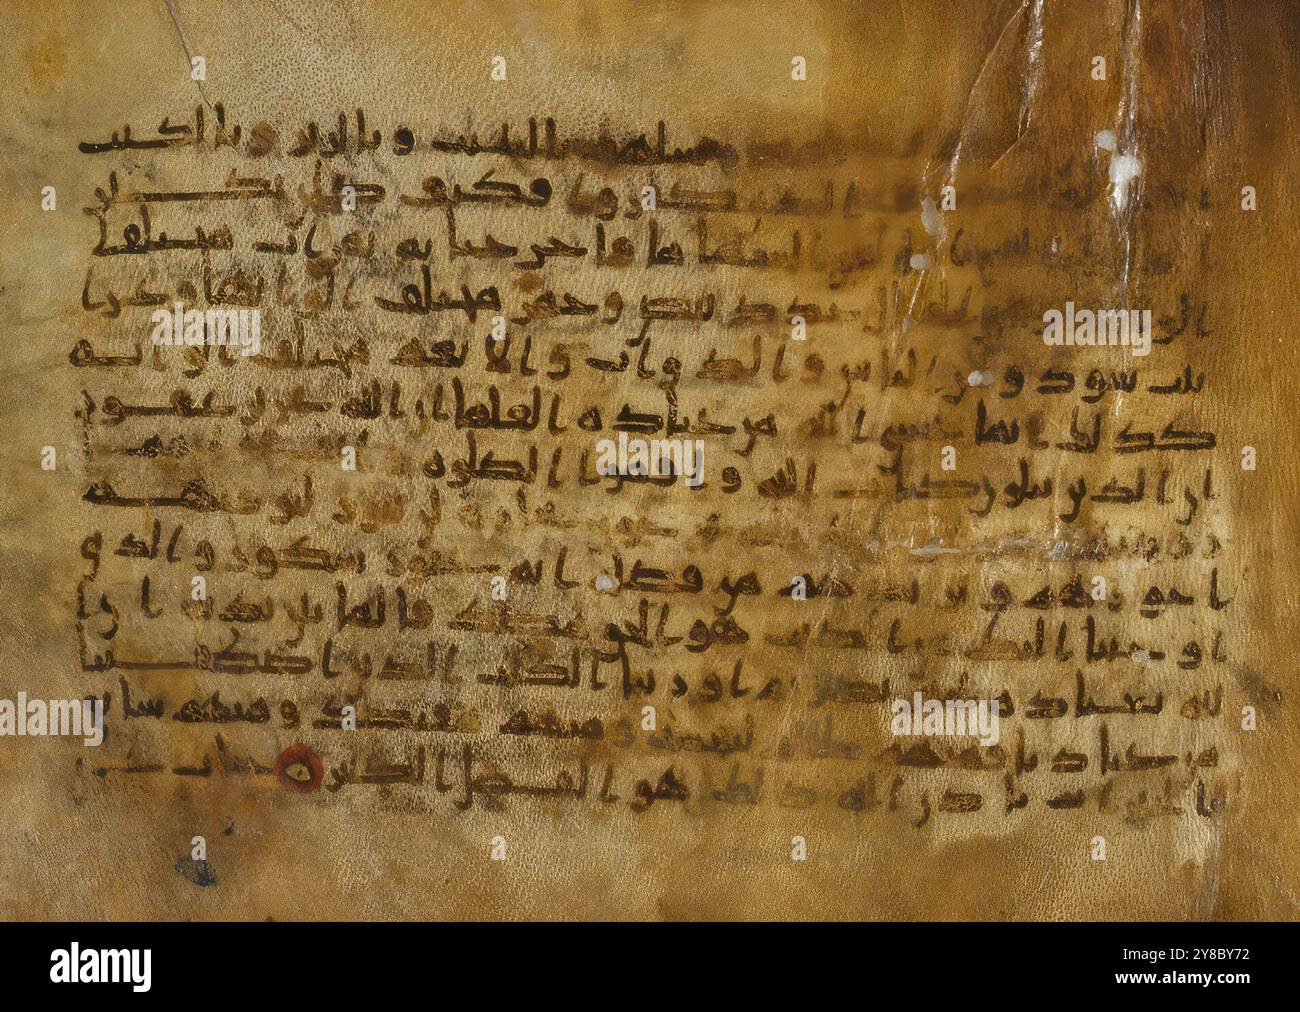 سلهم بالبينت وبالزبر وبالكتب
الذين كفروا فكيف كان نكير
السما ما فاخرجنا به ثمرت مختلفا
الونها ومن الجبال جدد بيض وحمر مختلف الونها وغرا
بيب سود ومن الناس والدواب والانعم مختلف الونه
كذلك انما يخشى الله من عباده العلما ان الله عزيز غفور
ان الذين يتلون كتاب الله واقموا الصلوه وانفقوا مما
رزقنهم سرا وعلنيه يرجون تجره لن تبور ليوفيهم
اجورهم ويزيدهم من فضله انه غفور شكور والذي
اوحينا اليك من الكتب هو الحق مصدقا لما بين يديه ان ا
لله بعباده لخبير بصير ثم اورثنا الكتب الذين اصطفينا
من عبادنا فمنهم ظالم لنفسه ومنهم مقتصد ومنهم سابق
بالخيرت باذن الله ذلك هو الفضل الكبير جنت عدن
alamy
Image ID: 2Y8BY72
www.alamy.com